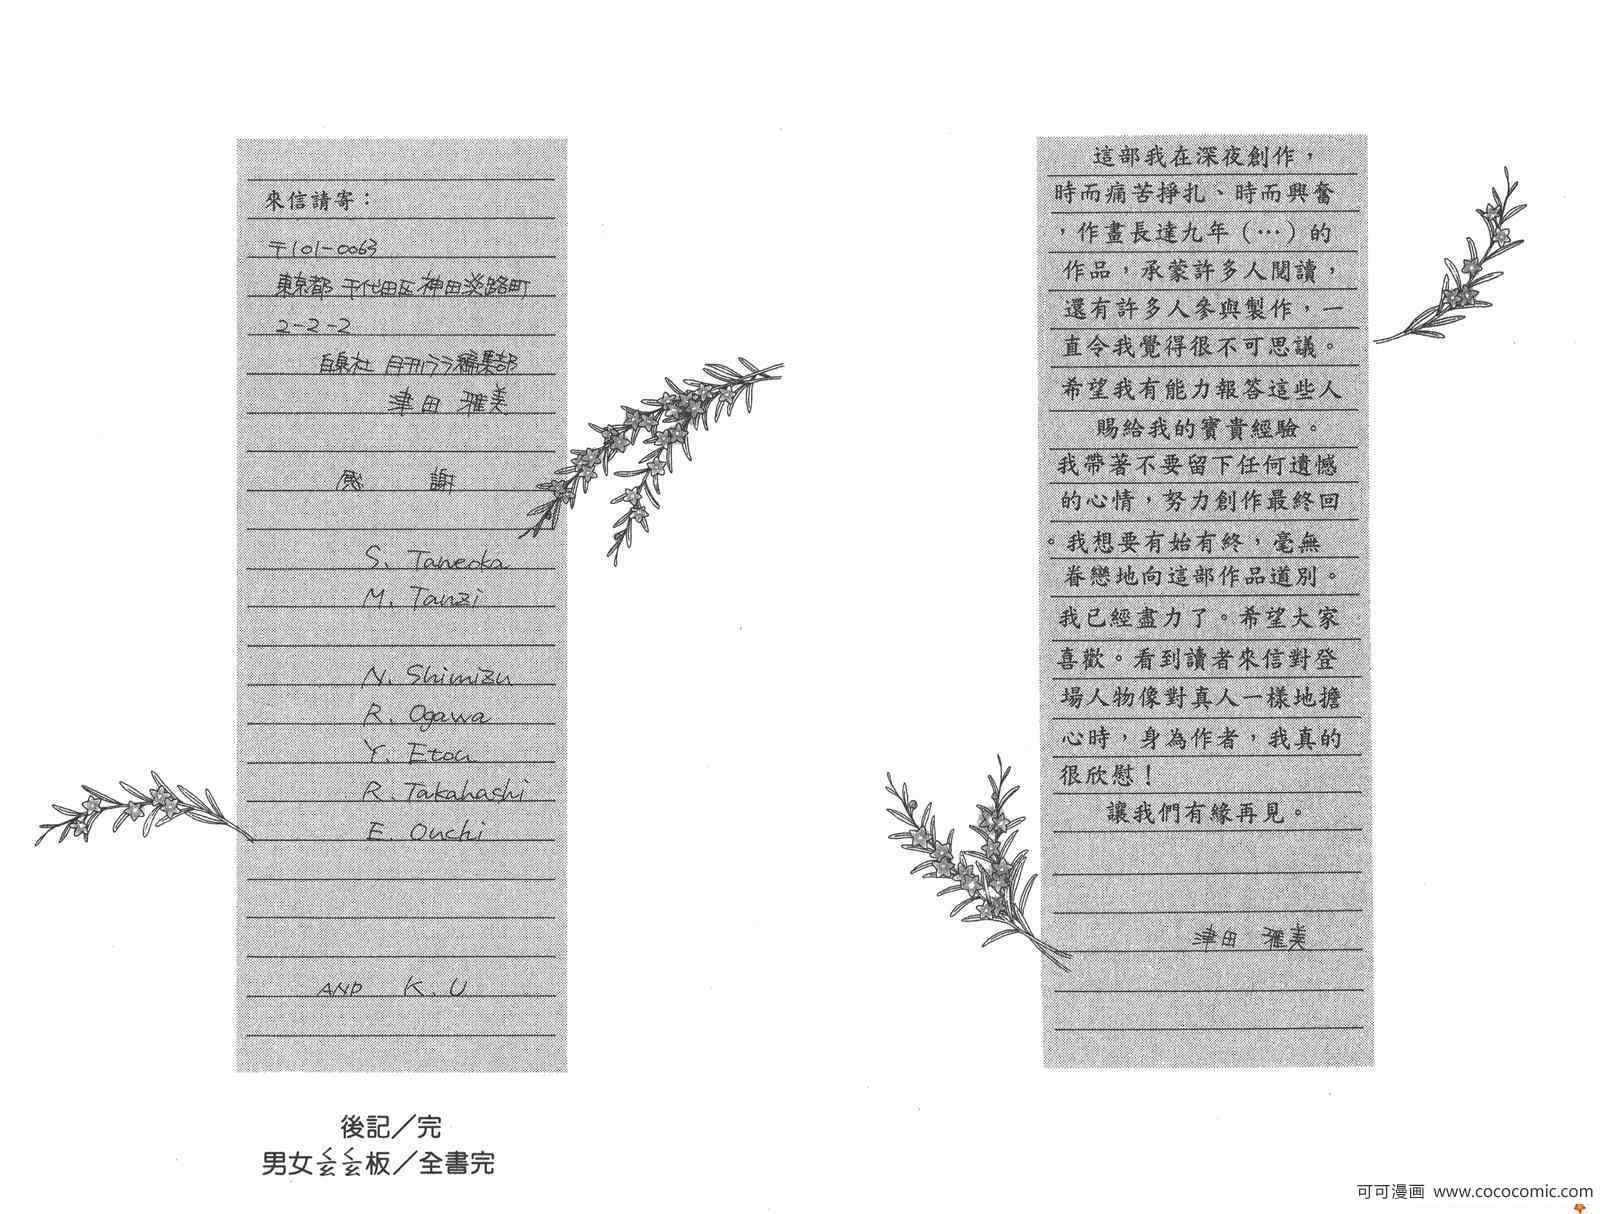 這部我在深夜創作，
時而痛苦掙扎、時而興奮
，作畫長達九年（…）的
作品，承蒙許多人閱讀，
還有許多人參與製作，一
直令我覺得很不可思議。
希望我有能力報答這些人
賜給我的寶貴經驗。
我帶著不要留下任何遺憾
的心情，努力創作最終回
。我想要有始有終，毫無
眷戀地向這部作品道別。
我已經盡力了。希望大家
喜歡。看到讀者來信對登
場人物像對真人一樣地擔
心時，身為作者，我真的
很欣慰！
讓我們有緣再見。
津田 雅美
來信請寄：
〒101-0063
東京都 千代田区 神田淡路町
2-2-2
白泉社 月刊ララ編集部
津田 雅美
感 謝
S. Taneoka
M. Tanzi
N. Shimizu
R. Ogawa
Y. Etou
R. Takahashi
E. Ouchi
AND K.U
後記／完
男女ㄑㄑ板／全書完
可可漫画 www.cococomic.com